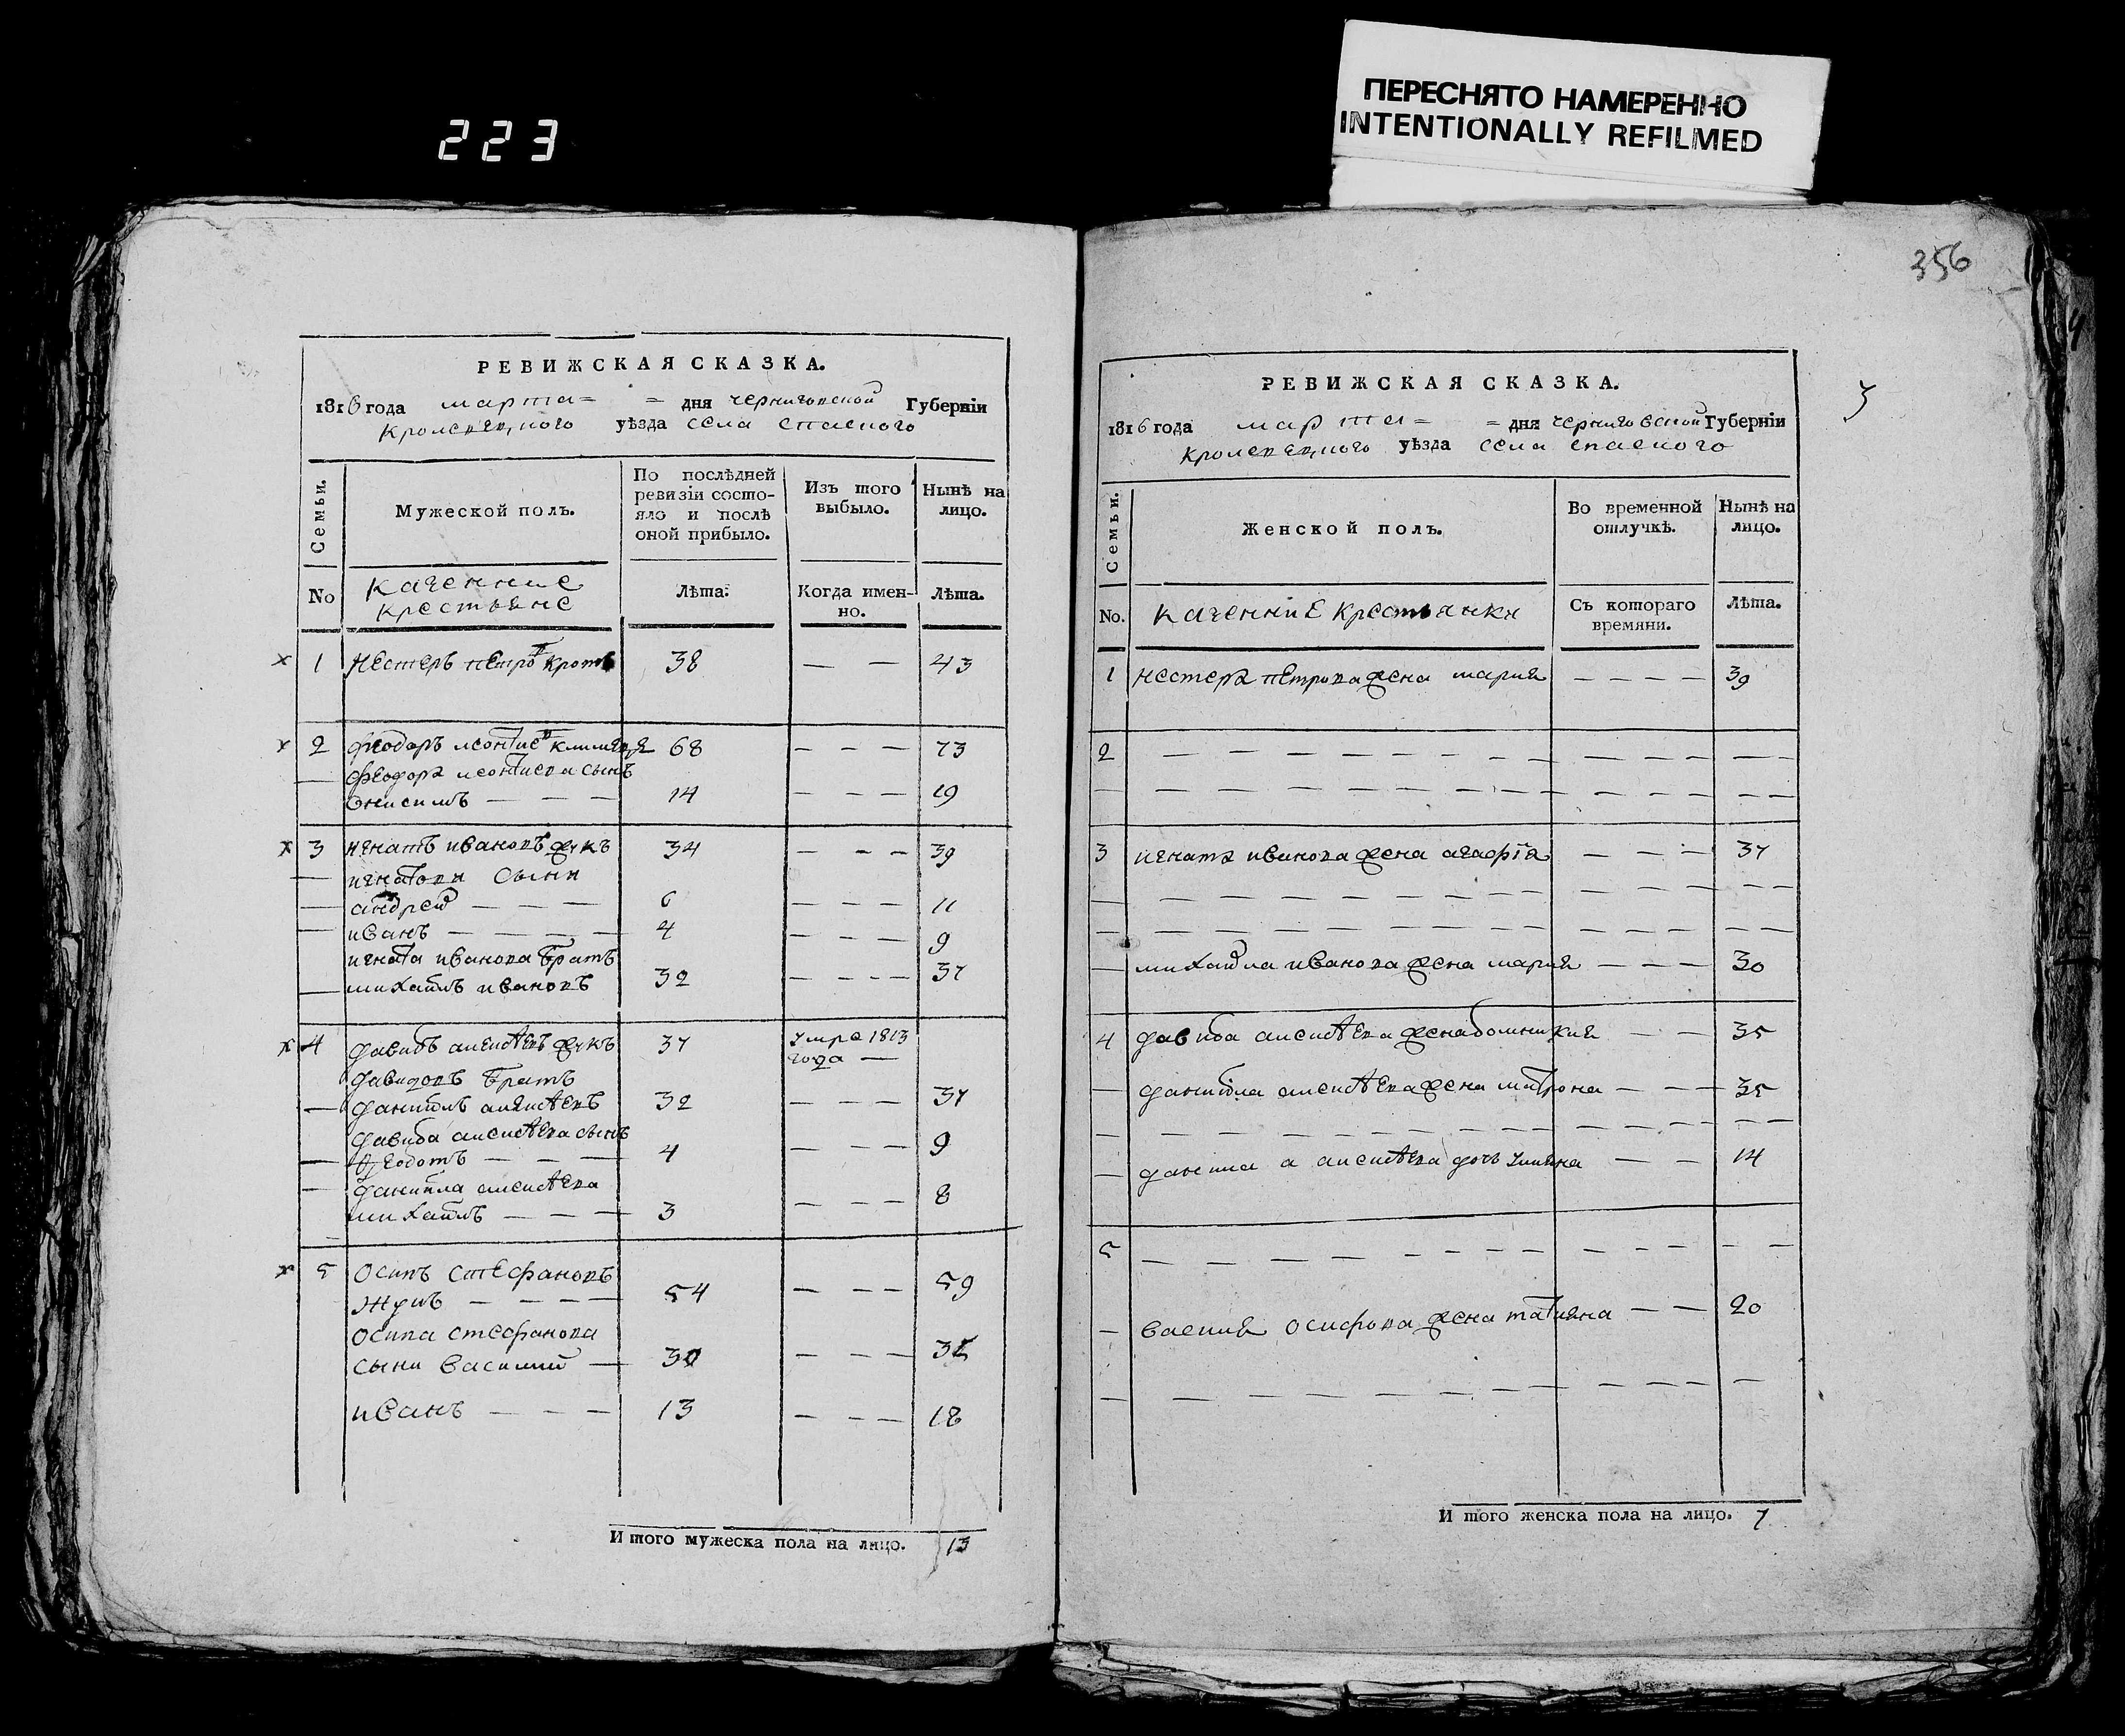 223
ПЕРЕСНЯТО НАМЕРЕННО
INTENTIONALLY REFILMED
РЕВИЖСКАЯ СКАЗКА.
1816 года марта = = дня черниговской Губерніи
Кролевецкого уѣзда села спаского
Семьи.
Мужеской полъ.
По послѣдней
ревизіи состо-
яло и послѣ
оной прибыло.
Изъ того
выбыло.
Нынѣ на
лицо.
No
казенние
крестьяне
Лѣта.
Когда имен-
но.
Лѣта.
1 Нестеръ петровъ кротъ 38 — — 43
2 феодоръ леонтиевъ 68 — — — 73
феодора леонтиева сынъ
Онисимъ — — — 14 — — — 19
3 игнатъ ивановъ жукъ 34 — — — 39
игнатови сыни
андрей — — — 6 — — — 11
иванъ — — — — 4 — — — 9
игната иванова братъ
михайлъ ивановъ 32 — — — 37
4 давидъ алексѣевъ жукъ 37 умре 1813
года —
давидовъ братъ
данийлъ алексѣевъ 32 — — — 37
давида алексѣева сынъ
федотъ — — — 4 — — — 9
данийла алексѣева
михайлъ — — — 3 — — — 8
5 Осипъ стефановъ
жукъ — — — — 54 — — — 59
осипа стефанова
сыни василий — 30 — — — 35
иванъ — — — 13 — — — 18
И того мужеска пола на лицо. 13
356
3
РЕВИЖСКАЯ СКАЗКА.
1816 года марта = = дня черниговской Губерніи
Кролевецкого уѣзда села спаского
Семьи.
Женской полъ.
Во временной
отлучкѣ.
Нынѣ на
лицо.
No.
казенние крестьянки
Съ котораго
времяни.
Лѣта.
1 нестера петрова жена мария — — — — 39
2 — — — —
3 игната иванова жена агафія — — — 37
михайла иванова жена мария — — — 30
4 давида алексѣева жена домникия — — 35
данийла алексѣева жена матрона — — — 35
данила алексѣева дочь улияна — — 14
5 — — — —
василия осифова жена татияна — — 20
И того женска пола на лицо. 7